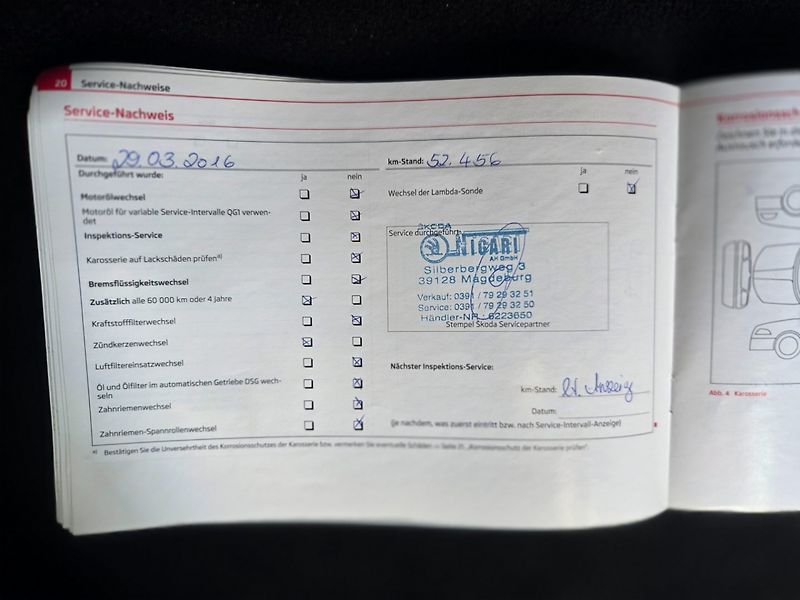 20 Service-Nachweise
Service-Nachweis
Datum: 29.03.2016
Durchgeführt wurde:
ja nein
Motorölwechsel
Motoröl für variable Service-Intervalle QG1 verwen-
det
Inspektions-Service
Karosserie auf Lackschäden prüfen a)
Bremsflüssigkeitswechsel
Zusätzlich alle 60 000 km oder 4 Jahre
Kraftstofffilterwechsel
Zündkerzenwechsel
Luftfiltereinsatzwechsel
Öl und Ölfilter im automatischen Getriebe DSG wech-
seln
Zahnriemenwechsel
Zahnriemen-Spannrollenwechsel
km-Stand: 52.456
ja nein
Wechsel der Lambda-Sonde
Service durchgeführt:
SKODA
NIGARI
AH GmbH
Silberbergweg 3
39128 Magdeburg
Verkauf: 0391 / 79 29 32 51
Service: 0391 / 79 29 32 50
Händler-NR.: 6223650
Stempel Škoda Servicepartner
Nächster Inspektions-Service:
km-Stand: lt. Anzeig
Datum:
(je nachdem, was zuerst eintritt bzw. nach Service-Intervall-Anzeige)
a) Bestätigen Sie die Unversehrtheit des Korrosionsschutzes der Karosserie bzw. vermerken Sie eventuelle Schäden ⇒ Seite 21, „Korrosionsschutz der Karosserie prüfen".
Korrosionssch
Abb. 4 Karosserie